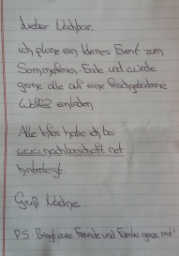 Lieber Nachbar,
ich plane ein kleines Event zum
Sommerferien Ende und würde
gerne alle auf eine
einladen
Alle Infos habe ich bei
www.nachbarschaft.net
hinterlegt
Gruß Nadine
PS. Bringt eure Freunde und Familie gerne mit!